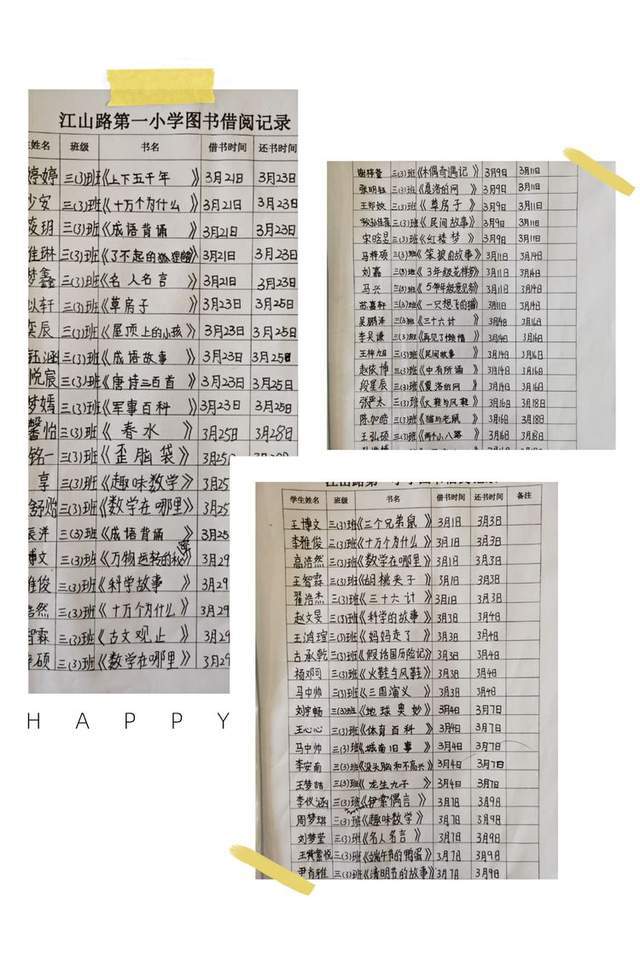 江山路第一小学图书借阅记录
姓名 班级 书名 借书时间 还书时间
婷婷 三(3)班 《上下五千年》 3月21日 3月23日
少安 三(3)班 《十万个为什么》 3月21日 3月23日
三(3)班 《成语背诵》 3月21日 3月23日
三(3)班 《了不起的狐狸爸爸》 3月21日 3月23日
梦鑫 三(3)班 《名人名言》 3月21日 3月23日
以轩 三(3)班 《草房子》 3月23日 3月25日
奕辰 三(3)班 《屋顶上的小孩》 3月23日 3月25日
钰涵 三(3)班 《成语故事》 3月23日 3月25日
悦宸 三(3)班 《唐诗三百首》 3月23日 3月25日
梦嫣 三(3)班 《军事百科》 3月23日 3月25日
馨怡 三(3)班 《春水》 3月25日 3月28日
铭一 三(3)班 《歪脑袋》 3月25
享 三(3)班 《趣味数学》 3月25
舒贻 三(3)班 《数学在哪里》 3月25
辰洋 三(3)班 《成语背诵》 3月25
博文 三(3)班 《万物运转的秘》 3月29
雅俊 三(3)班 《科学故事》 3月29
浩然 三(3)班 《十万个为什么》 3月29
智霖 三(3)班 《古文观止》 3月29
硕 三(3)班 《数学在哪里》 3月29
三(3)班 《木偶奇遇记》 3月9日 3月11日
张明钰 三(3)班 《夏洛的网》 3月9日 3月11日
三(3)班 《草房子》 3月9日 3月11日
三(3)班 《民间故事》 3月9日 3月11日
宋晗昱 三(3)班 《红楼梦》 3月9日 3月11日
马梓硕 三(3)班 《笨狼的故事》 3月11日 3月14日
刘嘉 三(3)班 3月11日 3月14日
马兴 三(3)班 3月11日 3月14日
苏嘉轩 三(3)班 《一只想飞的猫》 3月11日 3月14日
吴鹏泽 三(3)班 《三十六计》 3月14日 3月16日
李昊谦 三(3)班 《再见了懒惰》 3月14日 3月16日
王梓旭 三(3)班 《民间故事》 3月14日 3月16日
赵依博 三(3)班 《中有所诵》 3月14日 3月16日
段星辰 三(3)班 《夏洛的网》 3月14日 3月16日
三(3)班 《火鞋与风鞋》 3月16日 3月18日
陈加皓 三(3)班 《猫与老鼠》 3月16日 3月18日
王弘硕 三(3)班 《两个小八路》 3月16日 3月18日
学生姓名 班级 书名 借书时间 还书时间 备注
王博文 三(3)班 《三个兄弟鼠》 3月1日 3月3日
李雅俊 三(3)班 《十万个为什么》 3月1日 3月3日
高浩然 三(3)班 《数学在哪里》 3月1日 3月3日
王智霖 三(3)班 《胡桃夹子》 3月1日 3月3日
翟浩杰 三(3)班 《三十六计》 3月1日 3月3日
赵文旻 三(3)班 《科学的故事》 3月3日 3月4日
王鸿瑄 三(3)班 《妈妈走了》 3月3日 3月4日
古承乾 三(3)班 《假话国历险记》 3月3日 3月4日
杨邓可 三(3)班 《火鞋与风鞋》 3月3日 3月4日
马中帅 三(3)班 《三国演义》 3月3日 3月4日
刘宇畅 三(3)班 《地球奥妙》 3月4日 3月7日
王心心 三(3)班 《体育百科》 3月4日 3月7日
马中帅 三(3)班 《城南旧事》 3月4日 3月7日
李安南 三(3)班 《没头脑和不高兴》 3月4日 3月7日
三(3)班 《龙生九子》 3月4日 3月7日
李仪涵 三(3)班 《伊索寓言》 3月7日 3月9日
周梦琪 三(3)班 《趣味数学》 3月7日 3月9日
刘梦莹 三(3)班 《名人名言》 3月7日 3月9日
三(3)班 《端午节的鸭蛋》 3月7日 3月9日
尹肖雅 三(3)班 《清明节的故事》 3月7日 3月9日
HAPPY